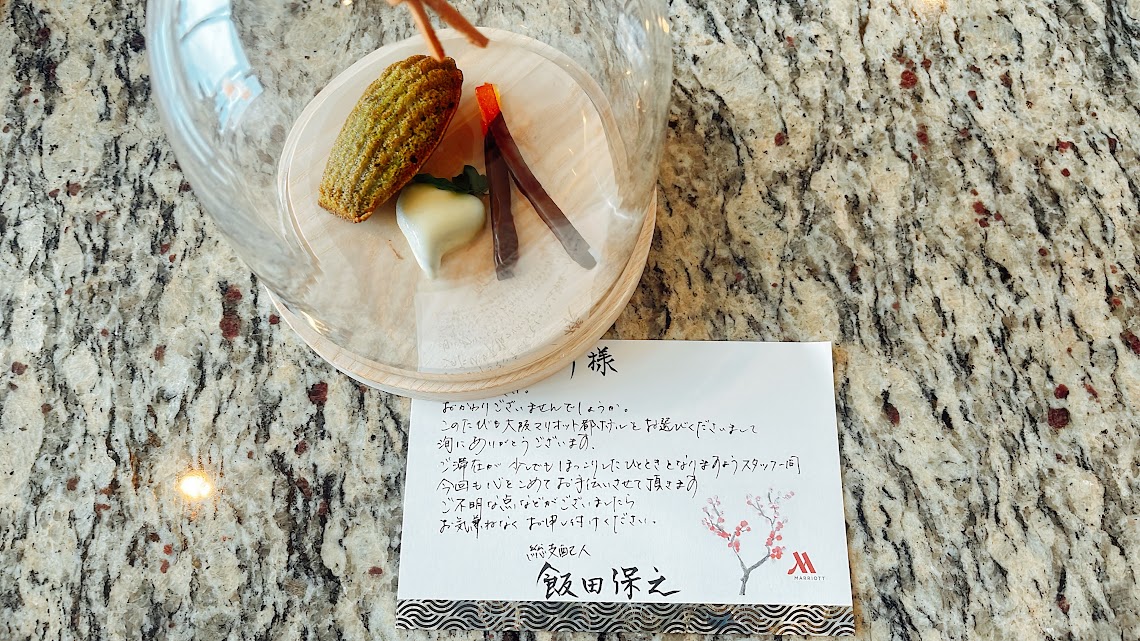 様
おかわりございませんでしょうか。
このたびも大阪マリオット都ホテルをお選びくださいまして
洵にありがとうございます。
ご滞在が少しでもほっこりしたひとときとなりますようスタッフ一同
今回も心をこめてお手伝いさせて頂きます
ご不明な点などがございましたら
お気兼ねなくお申し付けください。
総支配人
飯田保之
MARRIOTT